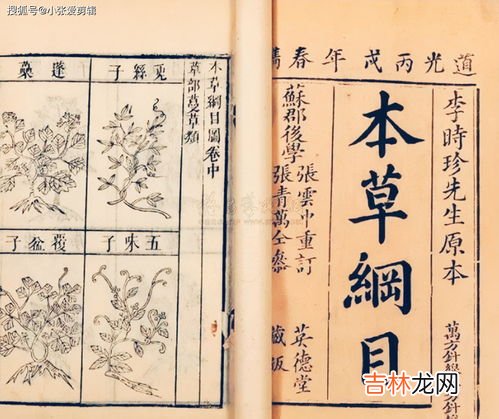 搜狐号@小张爱剪辑
道光丙戌年春鐫
李時珍先生原本
萬方針線
本草綱目
蘇郡後學
張雲中重訂
張青萬全參
英德堂
藏版
本草綱目圖卷中
草部蔓草類
兎絲子
五味子
蓬蘽
覆盆子
吉林龙网